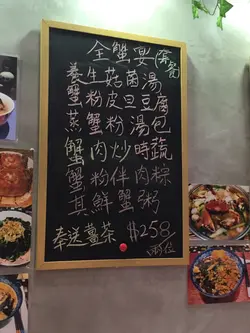 全蟹宴
養生菇菌湯
蟹粉皮旦豆腐
蒸蟹粉湯包
蟹肉炒時蔬
蟹粉伴肉粽
其鮮蟹粥
奉送薑茶 $258/兩位